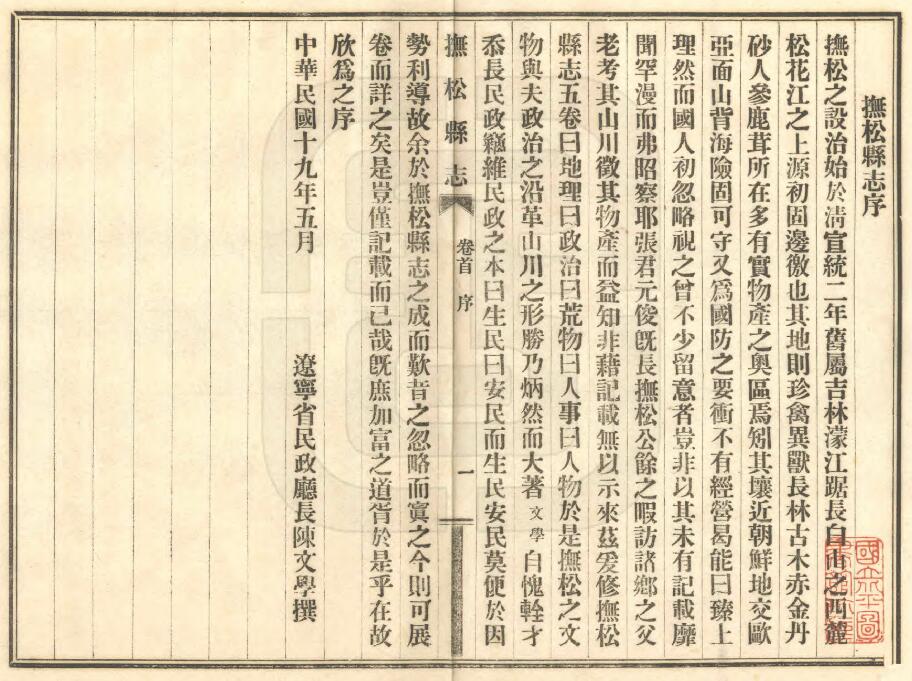 撫松縣志序
撫松之設治始於清宣統二年舊屬吉林濛江踞長白山之西麓
松花江之上源初固邊徼也其地則珍禽異獸長林古木赤金丹
砂人參鹿茸所在多有實物產之奧區焉矧其壤近朝鮮地交歐
亞面山背海險固可守又爲國防之要衝不有經營曷能日臻上
理然而國人初忽略視之曾不少留意者豈非以其未有記載靡
聞罕漫而弗昭察耶張君元俊旣長撫松公餘之暇訪諸鄉之父
老考其山川徵其物產而益知非藉記載無以示來茲爰修撫松
縣志五卷曰地理曰政治曰荒物曰人事曰人物於是撫松之文
物與夫政治之沿革山川之形勝乃炳然而大著文學自愧輇才
忝長民政竊維民政之本曰生民曰安民而生民安民莫便於因
撫松縣志 卷首 序 一
勢利導故余於撫松縣志之成而歎昔之忽略而寘之今則可展
卷而詳之矣是豈僅記載而已哉旣庶加富之道胥於是乎在故
欣爲之序
中華民國十九年五月 遼寧省民政廳長陳文學撰